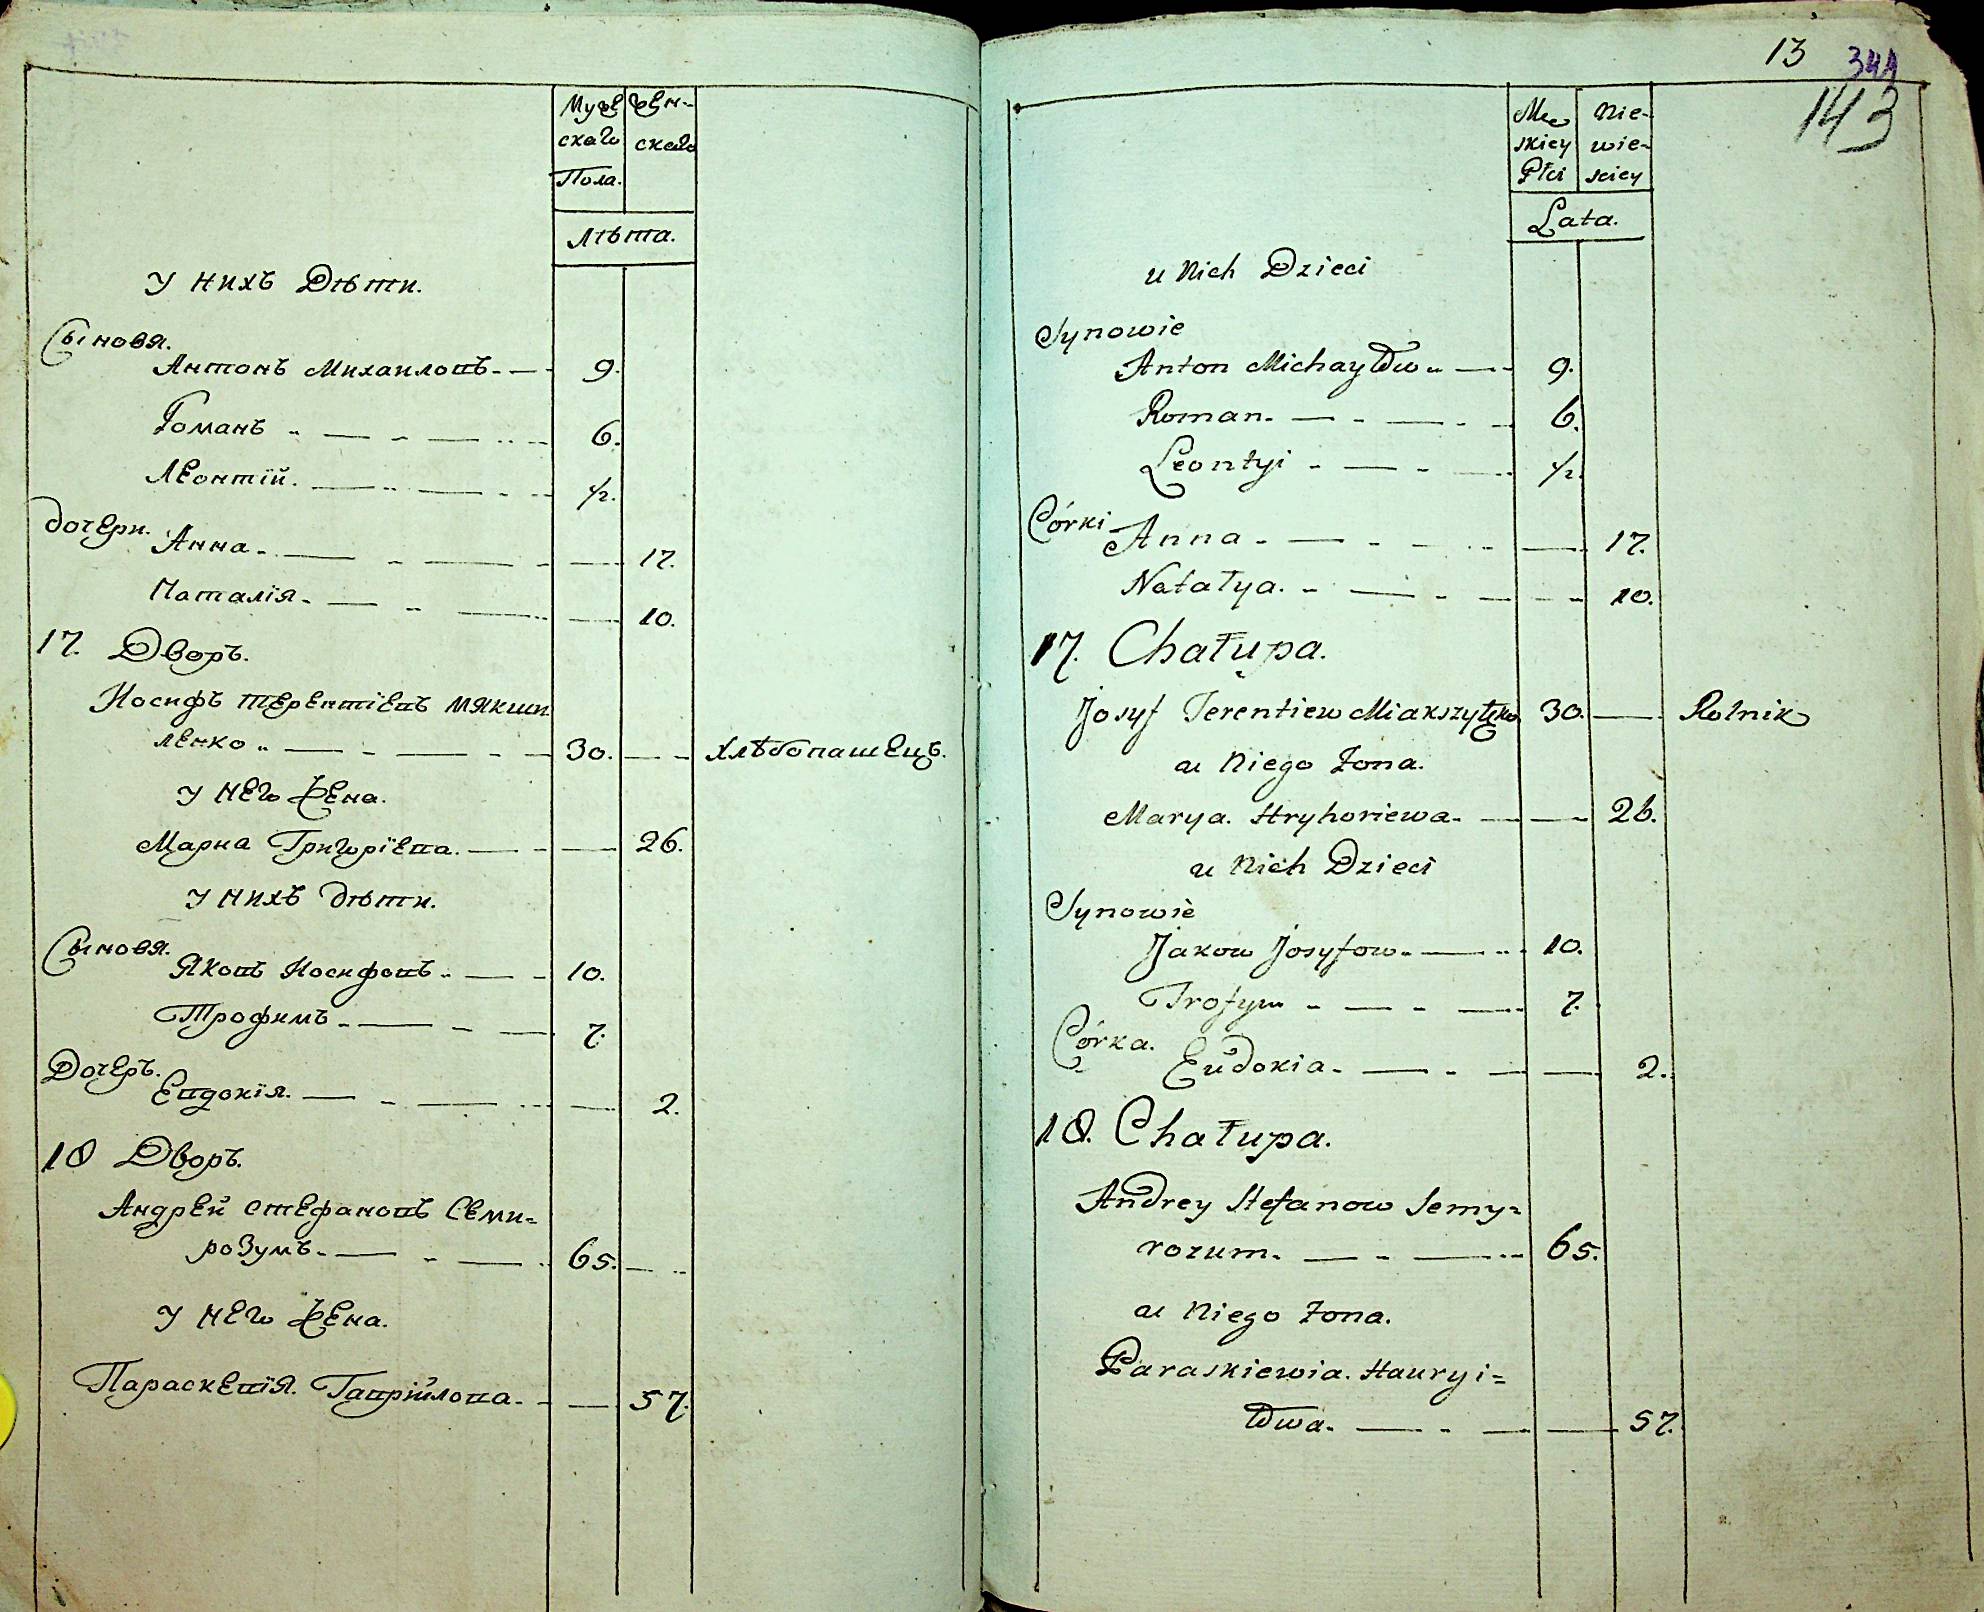 Мужес
скаго
Пола.
Жен-
скаго
Лѣта.
У нихъ Дѣти.
Сыновя.
Антонъ Михаиловъ
9.
Романъ
6.
Леонтій.
1/2.
дочери.
Анна
17.
Наталія
10.
17. Дворъ.
Иосифъ Терентіевъ Мякши
ленко 30. хлѣбопашецъ.
У него Жена.
Мариа Григоріева. 26.
У нихъ дѣти.
Сыновя.
Яковъ Иосифовъ 10.
Трофимъ 7.
Дочеръ.
Евдокія. 2.
18 Дворъ.
Андрей Стефановъ Семи=
розумъ 65.
У него Жена.
Параскевія. Гаврійлова. 57.
13 341
143
Mę
skiey
Płci
Nie-
wie-
sciey
Lata.
u Nich Dzieci
Synowie
Anton Michayłow 9.
Roman. 6.
Leontyi 1/2.
Córki
Anna 17.
Natałya. 10.
17. Chałupa.
Josyf Terentiew Miakszyłęko 30. Rolnik
u Niego Zona.
Marya. Hryhoriewa 26.
u Nich Dzieci
Synowie
Jakow Josyfow 10.
Trofym 7.
Córka.
Eudokia 2.
18. Chałupa.
Andrey Stefanow Semy=
rozum. 65.
u Niego Zona.
Paraskiewia. Hauryi=
łowa. 57.